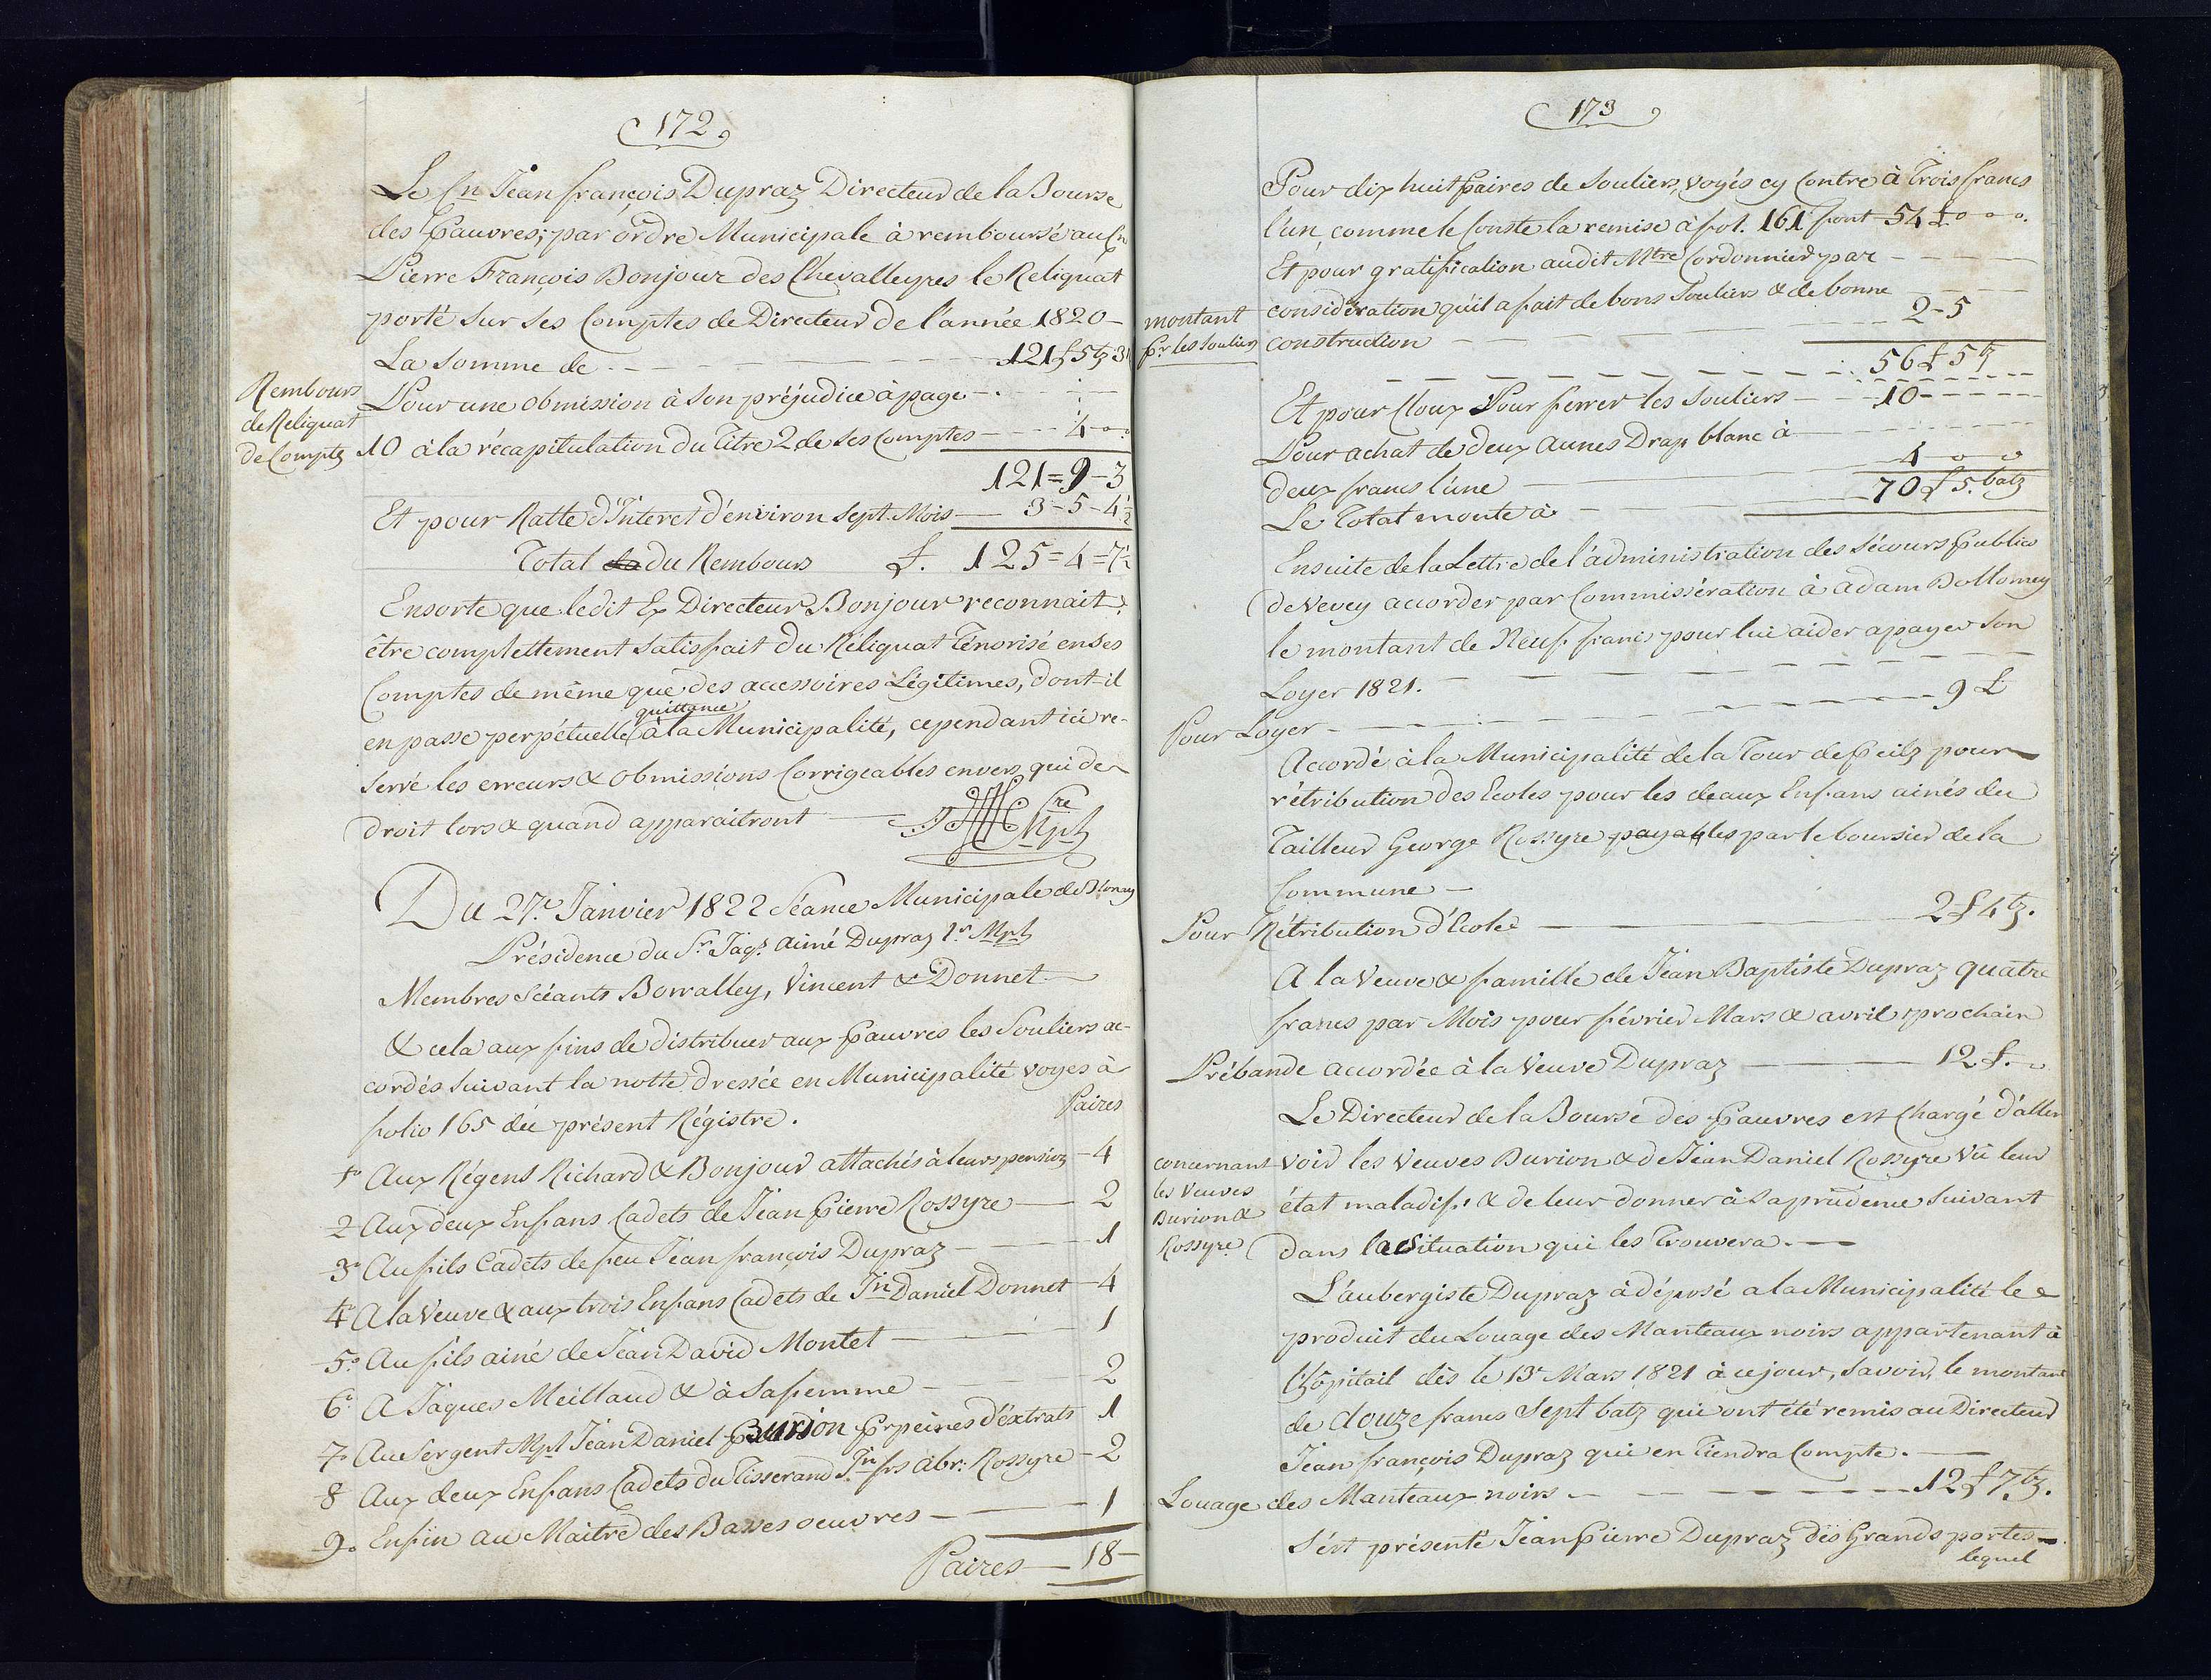 172
Le Cn Jean françois Dupraz Directeur de la Bourse
des Pauvres; par ordre Municipale à remboursé au Cn
Pierre François Bonjour des Chevalleyres le Reliquat
porté sur ses Comptes de Directeur de l'année 1820 -
La somme de - - - 121 £ 5 tz 3
Rembours
de Reliquat
de Compte
Pour une obmission à son préjudice à page - -
10 à la récapitulation du Titre 2 de ses Comptes - - 4 - "
121 = 9 - 3
Et pour Ratte d'Interet d'environ sept Mois - 3 - 5 - 4 1/2
Total du Rembours £. 125 = 4 = 7 1/2
Ensorte que ledit Ex Directeur Bonjour reconnait
être complettement satisfait du Réliquat Ténorisé en ses
Comptes de même que des accessoires Légitimes, dont-il
quittance
en passe perpétuelle à la Municipalité, cependant ici re-
servé les erreurs & obmissions Corrigeables envers qui de
droit lors & quand apparaitront
Du 27e. Janvier 1822 Séance Municipale de Blonay
Présidence du Sr. Jaqs. aimé Dupraz 1r. Mpl
Membres Scéants Bovvalley, Vincent & Donnet -
& cela aux fins de distribuer aux Pauvres les Souliers ac-
cordés suivant la notte dressée en Municipalité voyes à
folio 165 du présent Régistre. Paires
1o Aux Régens Richard & Bonjour attachés à leurs pensions - 4
2 Aux deux Enfans Cadets de Jean Pierre Rossyre - 2
3o Au fils Cadets de feu Jean françois Dupraz - - 1
4o A la Veuve & aux trois Enfans Cadets de Jn Daniel Donnet - 4
5o. Au fils ainé de Jean David Montet - - 1
6o. A Jaques Meillaud & à Sa femme - - 2
7o Au Sergent Mpl Jean Daniel Burion Pr peines d'éxtrats 1
8 Aux deux Enfans Cadets du Tisserand Jn frs Abr: Rossyre - 2
9o Enfin au Maitre des Basses oeuvres - - 1
Paires - 18 -
173
Pour dix huit Paires de Souliers, voyés cy Contre à Trois francs
l'un, comme le Conste la remise à fol. 161 font 54 £ o o o.
Et pour gratification audit Mtre Cordonnier par - - -
considération qu'il a fait de bons Souliers & de bonne - - -
montant
Pr les Souliers
construction - - 2 - 5
- - - 56 £ 5 tz
Et pour Cloux Pour ferrer les Souliers - - 10 - - -
Pour achat de deux aunes Drap blanc à - - -
deux francs l'une - - 4 o o
Le Total monte à - - 70 £ 5. batz
Ensuite de la Lettre de l'administration des Sécours Publics
de Vevey accorder par Commissération à adam Dollomey
le montant de Neuf francs pour lui aider a payer son
Loyer 1821. - - -
Pour Loyer - - - 9 £
Accordé à la Municipalité de la Tour de Peilz pour
rétribution des Ecoles pour les deaux Enfans ainés du
Tailleur George Rossyre payables par le boursier de la
Commune -
Pour Rétribution d'Ecole - 2 £ 4 tz.
A la Veuve & famille de Jean Baptiste Dupraz quatre
francs par Mois pour février Mars & avril prochain
Prébande accordée à la Veuve Dupraz - 12 £. -
Le Directeur de la Bourse des Pauvres est Chargé d'aller
concernant
les Veuves
Burion &
Rossyre
voir les Veuves Burion & de Jean Daniel Rossyre Vû leur
état maladif, & de leur donner à Sa prudence Suivant
dans la Situation qui les Trouvera. -
L'aubergiste Dupraz à déposé a la Municipalité le
produit du Louage des Manteaux noirs appartenant à
l'hôpitail dès le 13e Mars 1821 à ce jour, Savoir, le montant
de douze francs Sept batz qui ont été remis au Directeur
Jean françois Dupraz qui en Tiendra Compte. -
Louage des Manteaux noirs - - - 12 £ 7 tz.
S'ést présenté Jean Pierre Dupraz des Grands portes -
lequel